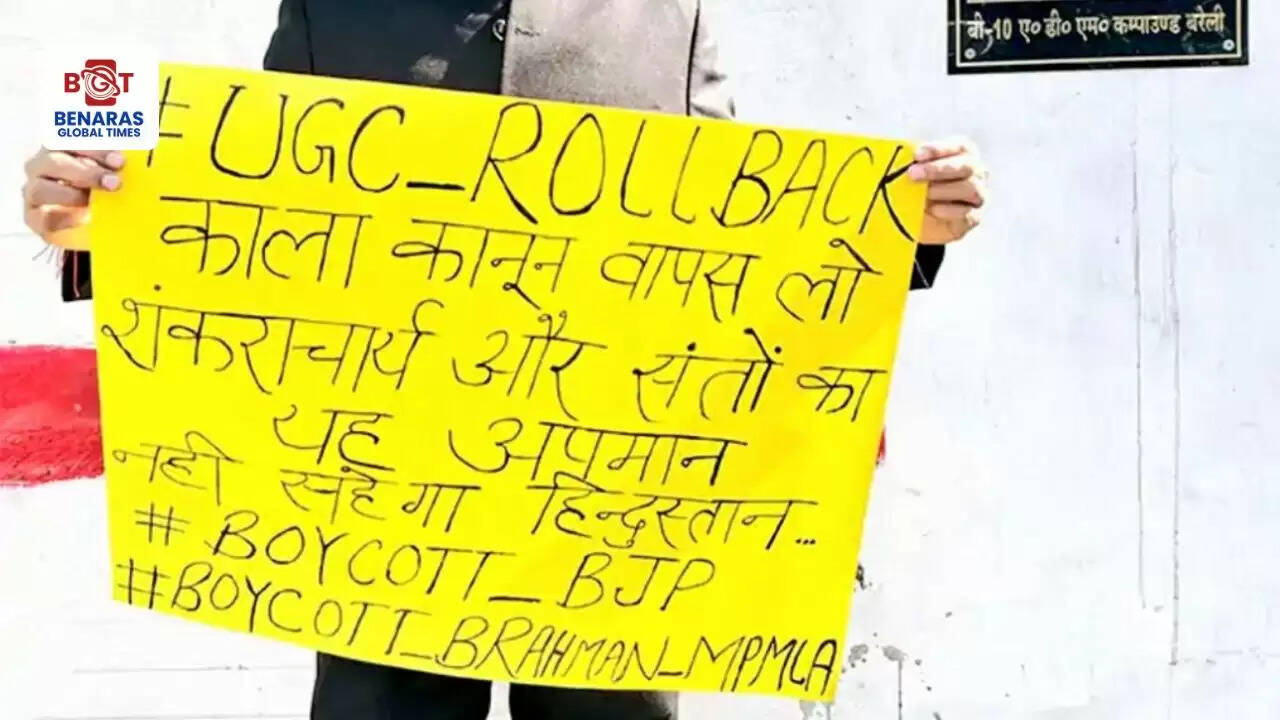 बी-10 ए० डी० एम० कम्पाउण्ड बरेली
BGT
BENARAS
GLOBAL TIMES
#UGC_ROLLBACK
काला कानून वापस लो
शंकराचार्य और संतों का
यह अपमान
नही सहेगा हिन्दुस्तान...
#BOYCOTT_BJP
#BOYCOTT_BRAHMAN_MPMLA